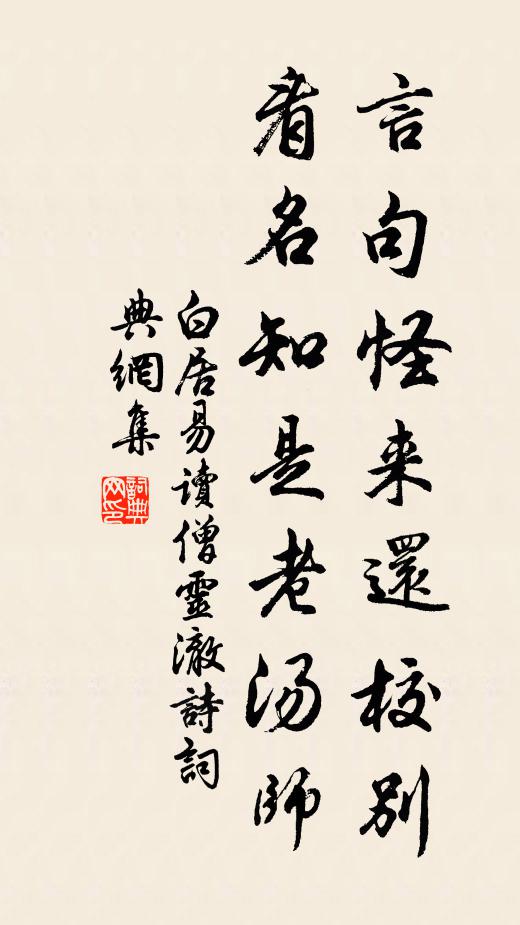 言句怪来還校别
看名知是老汤師
白居易讀僧靈澈詩詞
典網集
詞典网印